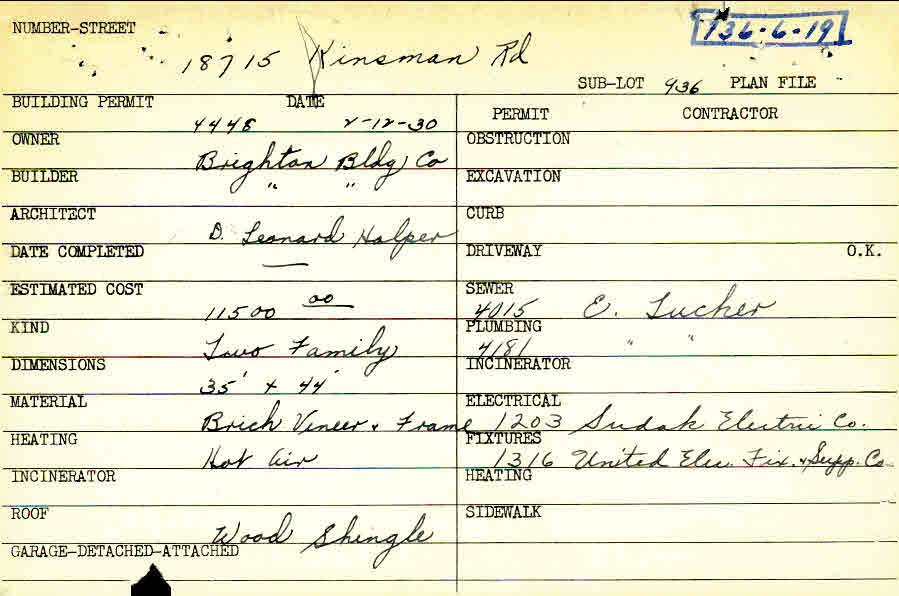 NUMBER-STREET 736-6-19
18715 Kinsman Rd
SUB-LOT 936 PLAN FILE
BUILDING PERMIT DATE
4448 2-12-30
OWNER
Brighton Bldg Co
BUILDER
" "
ARCHITECT
D. Leonard Halper
DATE COMPLETED
—
ESTIMATED COST
11500 00
KIND
Two Family
DIMENSIONS
35' x 44'
MATERIAL
Brick Vineer & Frame
HEATING
Hot Air
INCINERATOR
ROOF
Wood Shingle
GARAGE-DETACHED-ATTACHED
PERMIT CONTRACTOR
OBSTRUCTION
EXCAVATION
CURB
DRIVEWAY O.K.
SEWER
4015 E. Tucker
PLUMBING
4181 " "
INCINERATOR
ELECTRICAL
1203 Sudak Electric Co.
FIXTURES
1316 United Elec. Fix. & Supp. Co
HEATING
SIDEWALK